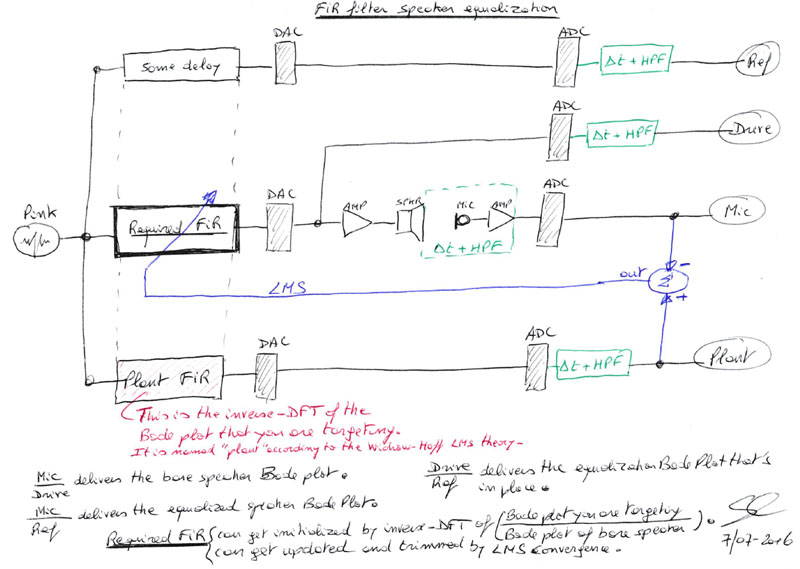 FiR filter speaker equalization
DAC
ADC
Some delay
Δt + HPF
Ref
ADC
Δt + HPF
Drive
Pink
Required FiR
DAC
AMP
SPKR
Mic
AMP
Δt + HPF
ADC
Mic
LMS
out
-
Σ
+
Plant FiR
DAC
ADC
Δt + HPF
Plant
This is the inverse-DFT of the
Bode plot that you are targeting.
It is named "plant" according to the Widrow-Hoff LMS theory-
Mic
Drive
delivers the bare speaker Bode plot.
Drive
Ref
delivers the equalization Bode Plot that's
in place.
Mic
Ref
delivers the equalized speaker Bode Plot.
Required FiR
can get initialized by inverse-DFT of (Bode plot you are targeting
Bode plot of bare speaker).
can get updated and trimmed by LMS convergence.
7/07-2016